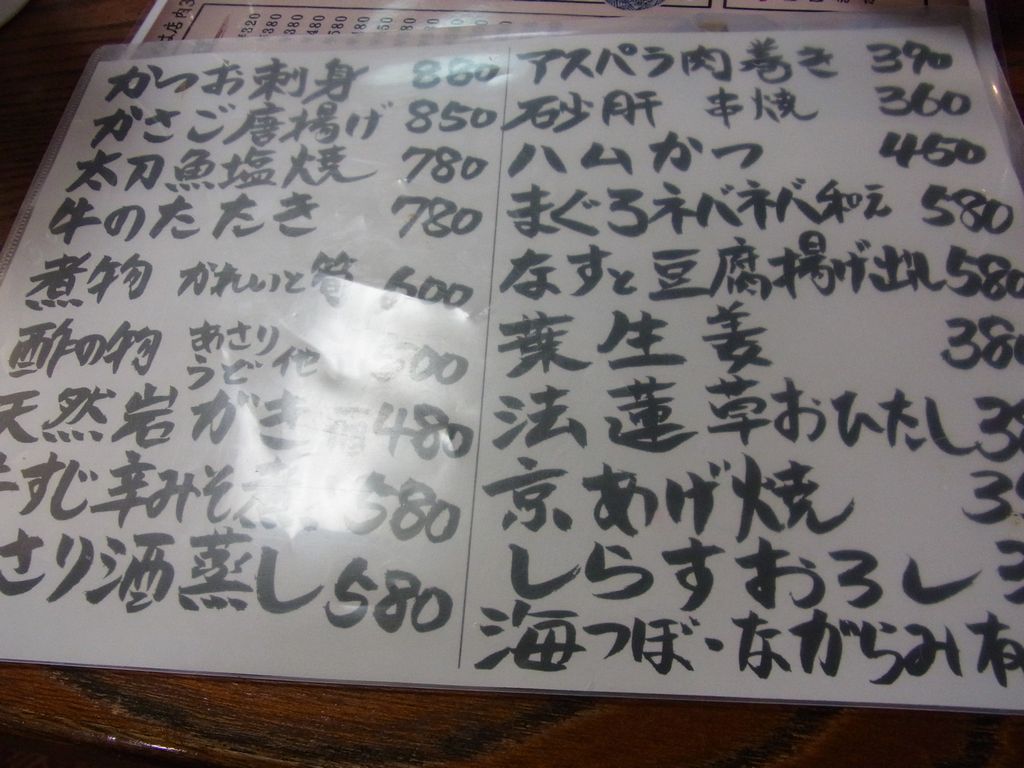 かつお刺身 880
かさご唐揚げ 850
太刀魚塩焼 780
牛のたたき 780
煮物 かれいと筍 600
酢の物 あさり
うど 他 500
天然岩がき 480
すじ辛みそ 580
さり酒蒸し 580
アスパラ肉巻き 390
砂肝 串焼 360
ハムかつ 450
まぐろネバネバ和え 580
なすと豆腐揚げ出し 580
葉生姜 380
法蓮草おひたし
京あげ焼
しらすおろし
海つぼ・ながらみ